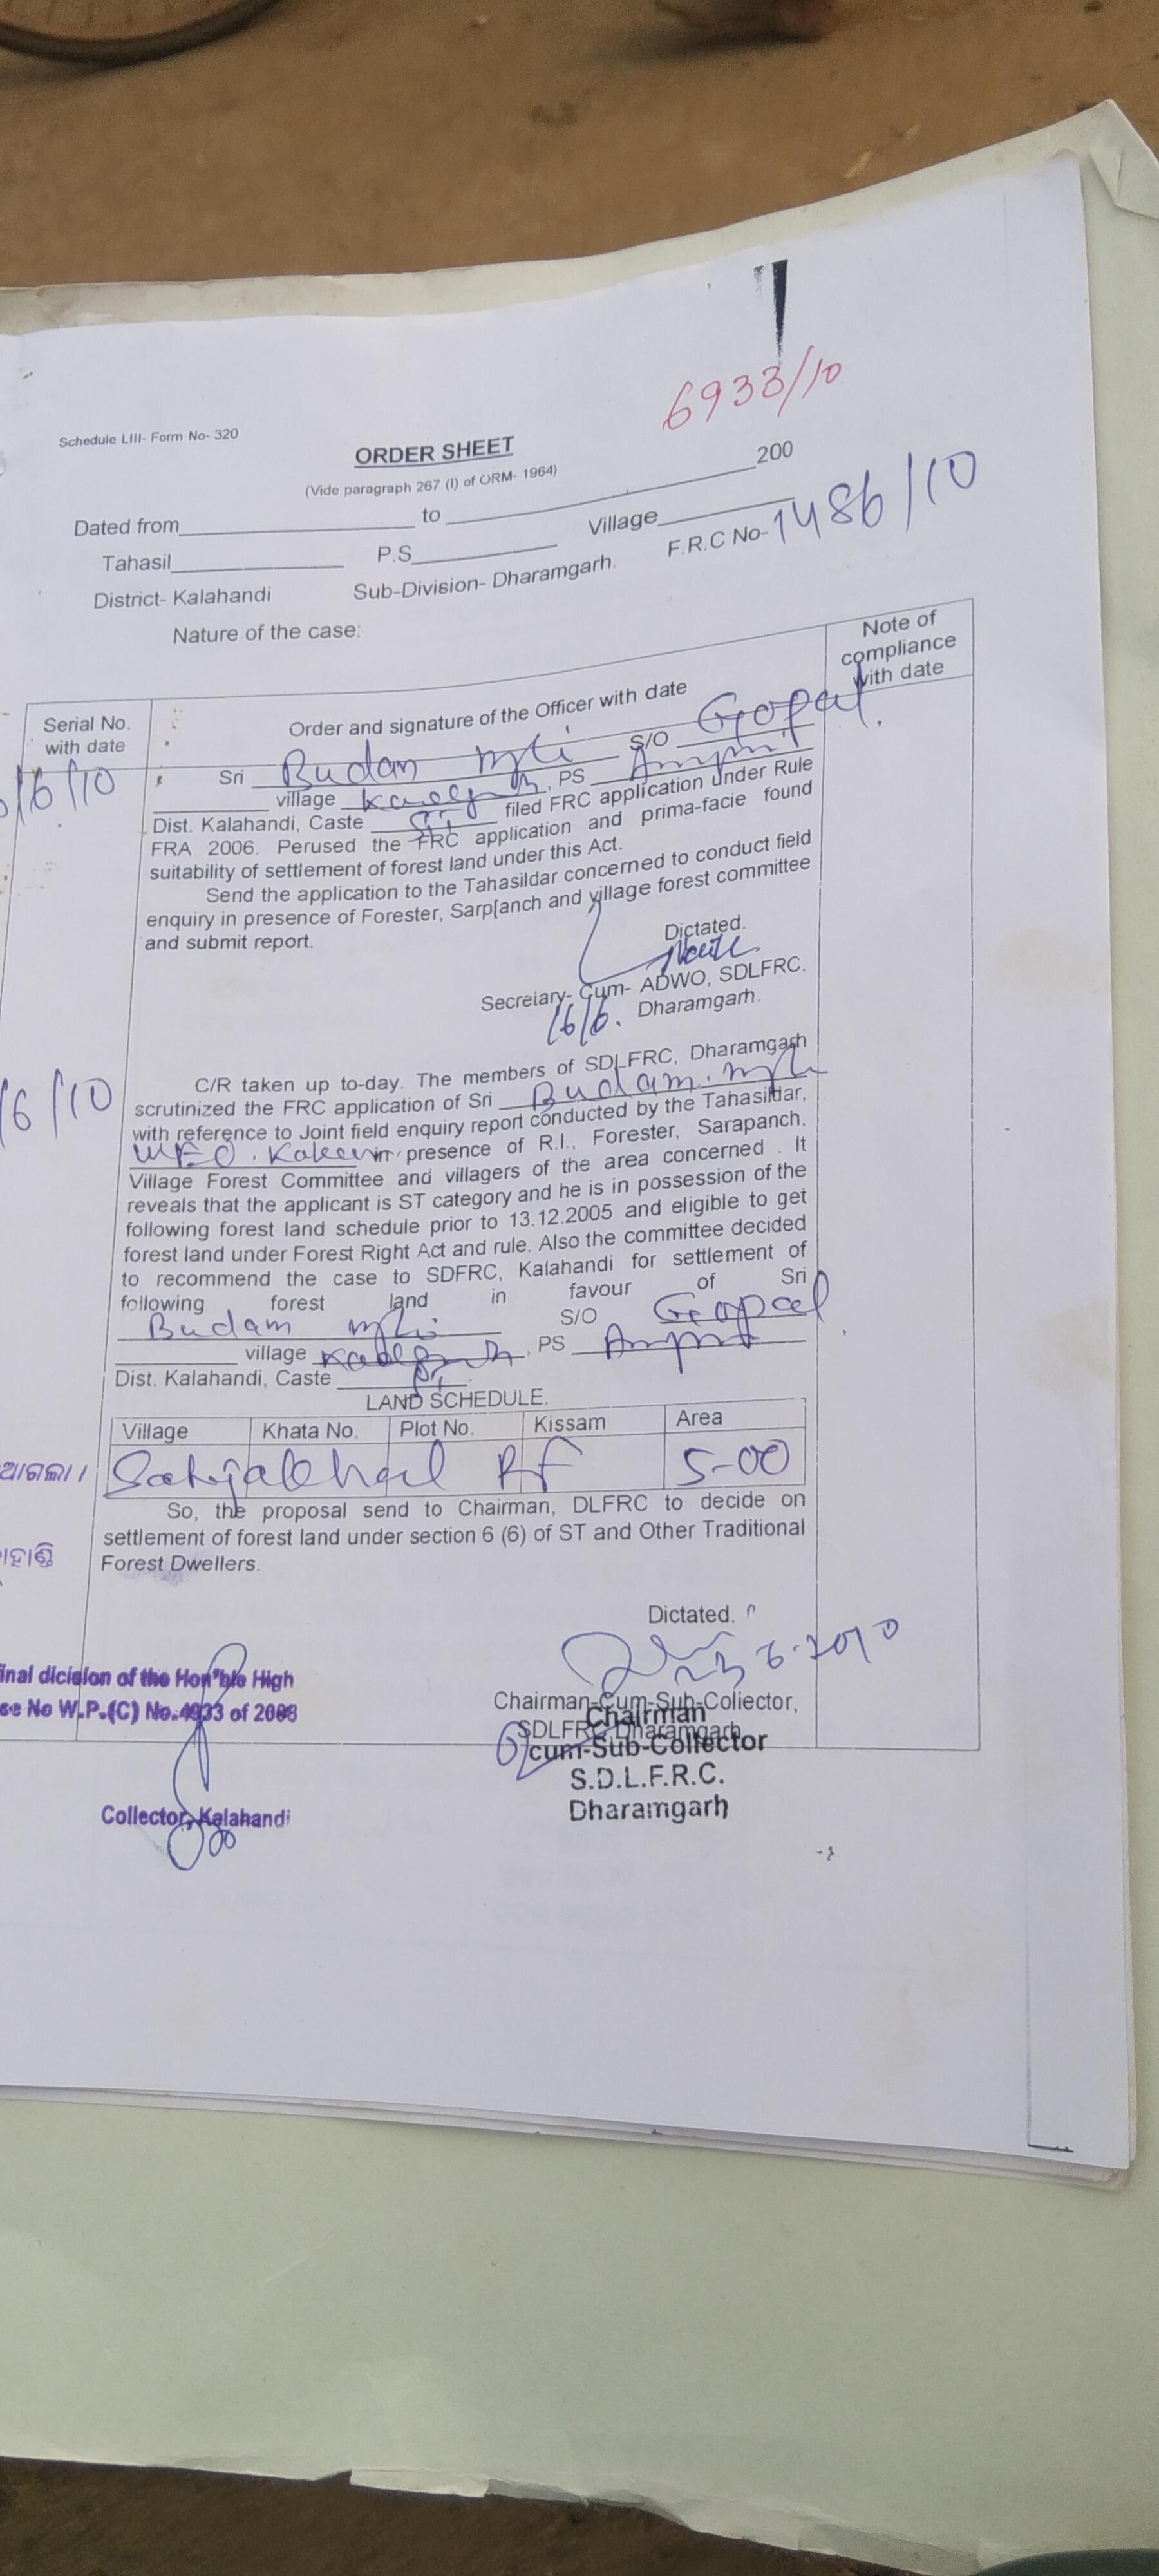 6933/10
Schedule LIII- Form No- 320
ORDER SHEET
(Vide paragraph 267 (I) of ORM- 1964)
Dated from to 200
Tahasil P.S Village
District- Kalahandi Sub-Division- Dharamgarh. F.R.C No- 1486/10
Nature of the case:
Serial No. with date
Order and signature of the Officer with date
Note of compliance with date
/6/10
Sri Budam S/O Gopal
village , PS
Dist. Kalahandi, Caste filed FRC application under Rule
FRA 2006. Perused the FRC application and prima-facie found
suitability of settlement of forest land under this Act.
Send the application to the Tahasildar concerned to conduct field
enquiry in presence of Forester, Sarp[anch and village forest committee
and submit report.
Dictated.
Secretary- Cum- ADWO, SDLFRC.
16/6. Dharamgarh.
/6/10
C/R taken up to-day. The members of SDLFRC, Dharamgarh
scrutinized the FRC application of Sri Budam
with reference to Joint field enquiry report conducted by the Tahasildar,
in presence of R.I., Forester, Sarapanch.
Village Forest Committee and villagers of the area concerned . It
reveals that the applicant is ST category and he is in possession of the
following forest land schedule prior to 13.12.2005 and eligible to get
forest land under Forest Right Act and rule. Also the committee decided
to recommend the case to SDFRC, Kalahandi for settlement of
following forest land in favour of Sri
Budam S/O Gopal
village , PS
Dist. Kalahandi, Caste
LAND SCHEDULE.
Village Khata No. Plot No. Kissam Area
RF 5-00
ଆଗଲା ।
So, the proposal send to Chairman, DLFRC to decide on
settlement of forest land under section 6 (6) of ST and Other Traditional
Forest Dwellers.
Dictated.
23.6.2010
inal dicision of the Hon"ble High
se No W.P.(C) No.4933 of 2008
Collector, Kalahandi
Chairman-Cum-Sub-Collector,
SDLFRC Dharamgarh
Chairman
cum-Sub-Collector
S.D.L.F.R.C.
Dharamgarh